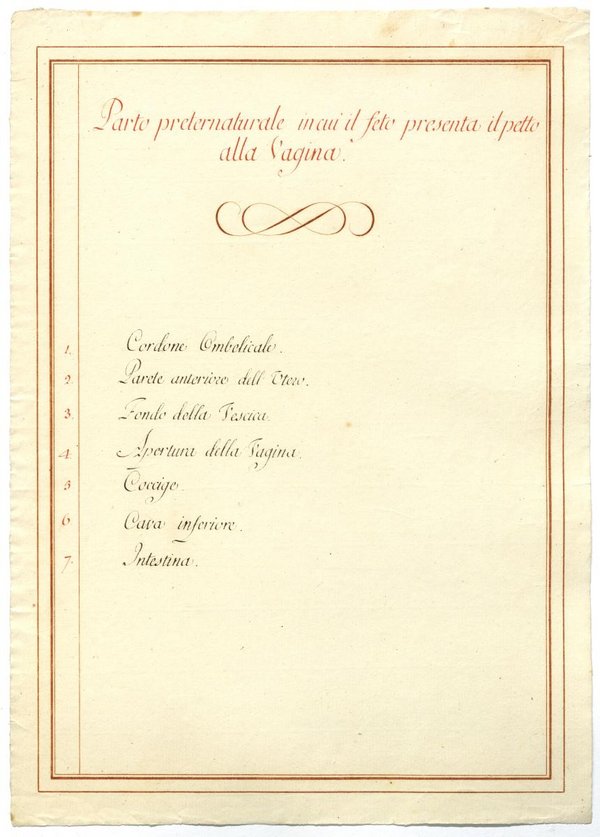 Parto preternaturale in cui il feto presenta il petto
alla Vagina.
1. Cordone Ombelicale.
2. Parete anteriore dell' Utero.
3. Fondo della Vescica.
4. Apertura della Vagina.
5 Coccige.
6. Cava inferiore.
7. Intestina.